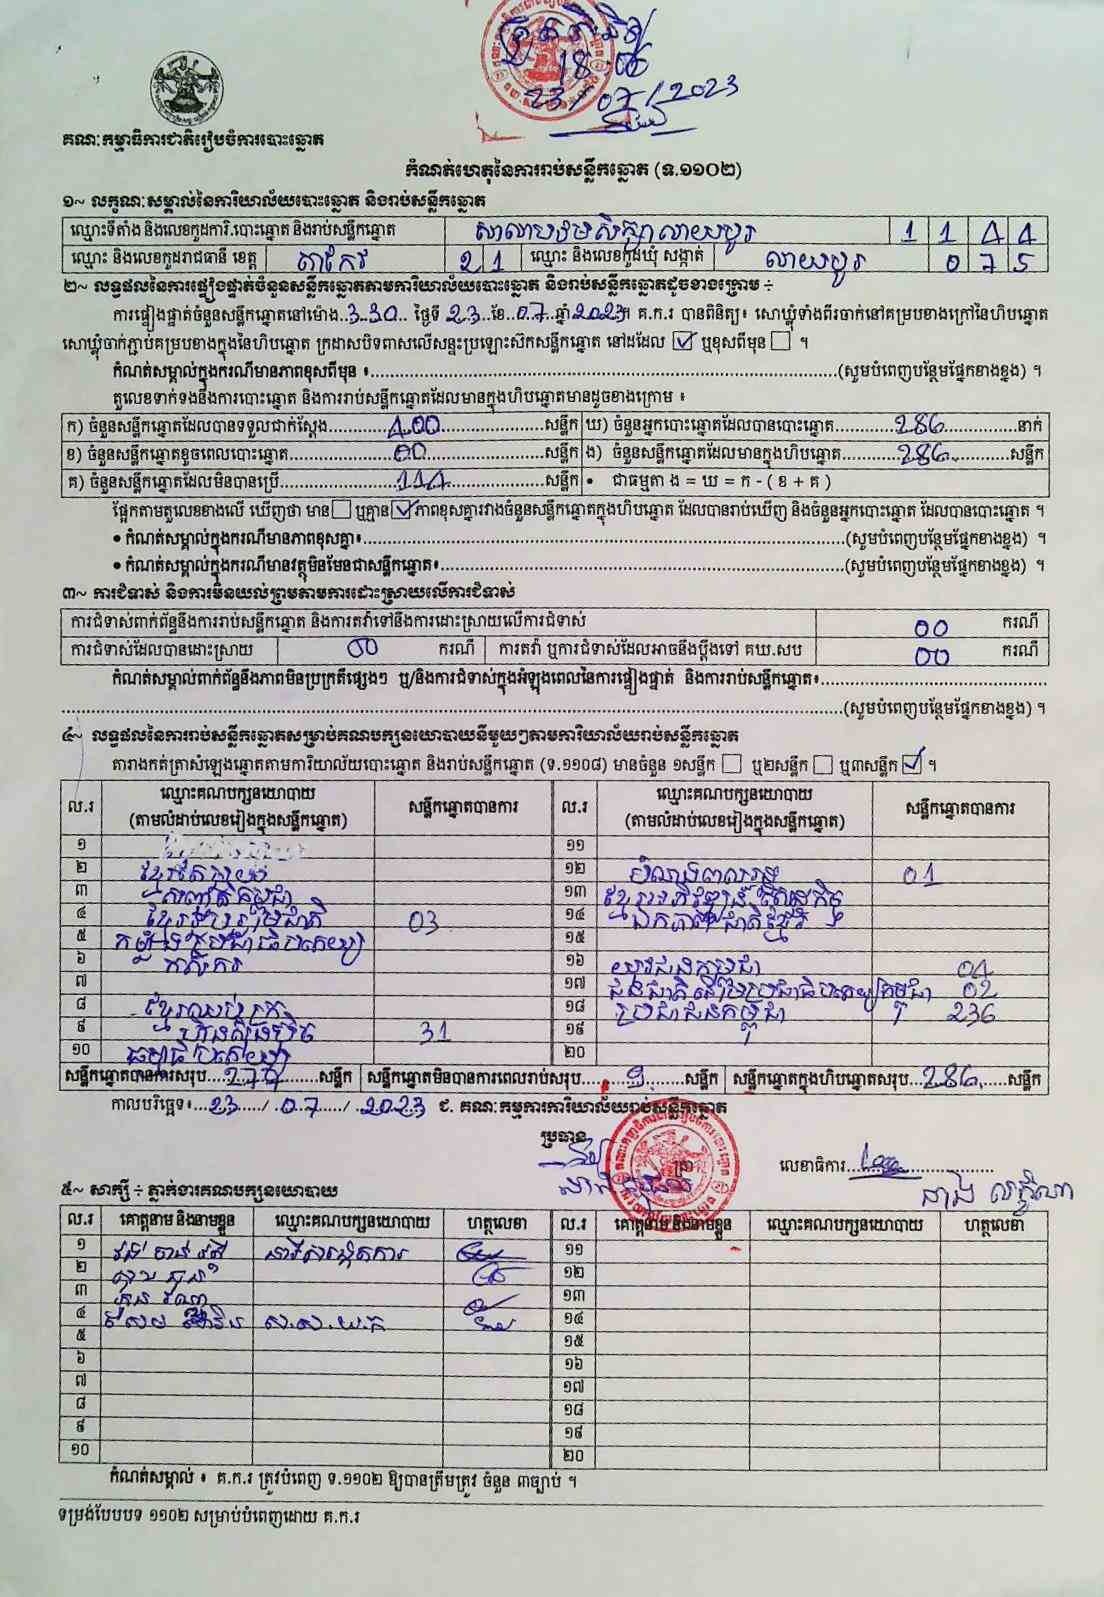 18.06
23/07/2023
គណៈកម្មាធិការជាតិរៀបចំការបោះឆ្នោត
កំណត់ហេតុនៃការរាប់សន្លឹកឆ្នោត (ទ.១១០២)
១~ លក្ខណៈសម្គាល់នៃការិយាល័យបោះឆ្នោត និងរាប់សន្លឹកឆ្នោត
ឈ្មោះទីតាំង និងលេខកូដការិ.បោះឆ្នោត និងរាប់សន្លឹកឆ្នោត សាលាបឋមសិក្សាលាយបូរ 1 1 4 4
ឈ្មោះ និងលេខកូដរាជធានី ខេត្ត តាកែវ 2 1 ឈ្មោះ និងលេខកូដឃុំ សង្កាត់ លាយបូរ 0 7 5
២~ លទ្ធផលនៃការផ្ទៀងផ្ទាត់ចំនួនសន្លឹកឆ្នោតតាមការិយាល័យបោះឆ្នោត និងរាប់សន្លឹកឆ្នោតដូចខាងក្រោម ÷
ការផ្ទៀងផ្ទាត់ចំនួនសន្លឹកឆ្នោតនៅម៉ោង..3.30.. ថ្ងៃទី 23..ខែ..07..ឆ្នាំ 2023។ គ.ក.រ បានពិនិត្យ៖ សោឃ្លុំទាំងពីរចាក់នៅគម្របខាងក្រៅនៃហិបឆ្នោត
សោឃ្លុំចាក់ភ្ជាប់គម្របខាងក្នុងនៃហិបឆ្នោត ក្រដាសបិទពាសលើសន្ទះប្រឡោះសឹកសន្លឹកឆ្នោត នៅដដែល ☑ ឬខុសពីមុន ☐ ។
កំណត់សម្គាល់ក្នុងករណីមានភាពខុសពីមុន ៖....................(សូមបំពេញបន្ថែមផ្នែកខាងខ្នង) ។
តួលេខទាក់ទងនឹងការបោះឆ្នោត និងការរាប់សន្លឹកឆ្នោតដែលមានក្នុងហិបឆ្នោតមានដូចខាងក្រោម ៖
ក) ចំនួនសន្លឹកឆ្នោតដែលបានទទួលជាក់ស្តែង..........400..........សន្លឹក ឃ) ចំនួនអ្នកបោះឆ្នោតដែលបានបោះឆ្នោត..........286..........នាក់
ខ) ចំនួនសន្លឹកឆ្នោតខូចពេលបោះឆ្នោត..........00..........សន្លឹក ង) ចំនួនសន្លឹកឆ្នោតដែលមានក្នុងហិបឆ្នោត..........286..........សន្លឹក
គ) ចំនួនសន្លឹកឆ្នោតដែលមិនបានប្រើ..........114..........សន្លឹក • ជាធម្មតា ង = ឃ = ក - ( ខ + គ )
ផ្អែកតាមតួលេខខាងលើ ឃើញថា មាន ☐ ឬគ្មាន ☑ ភាពខុសគ្នារវាងចំនួនសន្លឹកឆ្នោតក្នុងហិបឆ្នោត ដែលបានរាប់ឃើញ និងចំនួនអ្នកបោះឆ្នោត ដែលបានបោះឆ្នោត ។
• កំណត់សម្គាល់ក្នុងករណីមានភាពខុសគ្នា៖....................(សូមបំពេញបន្ថែមផ្នែកខាងខ្នង) ។
• កំណត់សម្គាល់ក្នុងករណីមានវត្ថុមិនមែនជាសន្លឹកឆ្នោត៖....................(សូមបំពេញបន្ថែមផ្នែកខាងខ្នង) ។
៣~ ការជំទាស់ និងការមិនយល់ព្រមតាមការដោះស្រាយលើការជំទាស់
ការជំទាស់ពាក់ព័ន្ធនឹងការរាប់សន្លឹកឆ្នោត និងការតវ៉ាទៅនឹងការដោះស្រាយលើការជំទាស់ 00 ករណី
ការជំទាស់ដែលបានដោះស្រាយ 00 ករណី ការតវ៉ា ឬការជំទាស់ដែលអាចនឹងប្តឹងទៅ គឃ.សប 00 ករណី
កំណត់សម្គាល់ពាក់ព័ន្ធនឹងភាពមិនប្រក្រតីផ្សេងៗ ឬ/និងការជំទាស់ក្នុងអំឡុងពេលនៃការផ្ទៀងផ្ទាត់ និងការរាប់សន្លឹកឆ្នោត៖....................
....................(សូមបំពេញបន្ថែមផ្នែកខាងខ្នង) ។
៤~ លទ្ធផលនៃការរាប់សន្លឹកឆ្នោតសម្រាប់គណបក្សនយោបាយនីមួយៗតាមការិយាល័យរាប់សន្លឹកឆ្នោត
តារាងកត់ត្រាសំឡេងឆ្នោតតាមការិយាល័យបោះឆ្នោត និងរាប់សន្លឹកឆ្នោត (ទ.១១០៨) មានចំនួន ១សន្លឹក ☐ ឬ២សន្លឹក ☐ ឬ៣សន្លឹក ☑ ។
ល.រ ឈ្មោះគណបក្សនយោបាយ (តាមលំដាប់លេខរៀងក្នុងសន្លឹកឆ្នោត) សន្លឹកឆ្នោតបានការ ល.រ ឈ្មោះគណបក្សនយោបាយ (តាមលំដាប់លេខរៀងក្នុងសន្លឹកឆ្នោត) សន្លឹកឆ្នោតបានការ
១ ១១
២ ខ្មែរតែមួយ ១២ 01
៣ សញ្ជាតិកម្ពុជា ១៣ ខ្មែរអភិវឌ្ឍន៍សេដ្ឋកិច្ច
៤ ខ្មែររួបរួមជាតិ 03 ១៤ ឯកភាពជាតិខ្មែរ
៥ កម្លាំងប្រជាធិបតេយ្យ ១៥
៦ កសិករ ១៦ យុវជនកម្ពុជា 04
៧ ១៧ ជនជាតិដើមប្រជាធិបតេយ្យកម្ពុជា 02
៨ ខ្មែរឈប់ក្រ ១៨ ប្រជាជនកម្ពុជា 236
៩ ហ្វ៊ុនស៊ិនប៉ិច 31 ១៩
១០ ធម្មាធិបតេយ្យ ២០
សន្លឹកឆ្នោតបានការសរុប...277...សន្លឹក សន្លឹកឆ្នោតមិនបានការពេលរាប់សរុប...9...សន្លឹក សន្លឹកឆ្នោតក្នុងហិបឆ្នោតសរុប..286...សន្លឹក
កាលបរិច្ឆេទ៖...23..../..07..../..2023 ជ. គណៈកម្មការការិយាល័យរាប់សន្លឹកឆ្នោត
ប្រធាន
លេខាធិការ..............
៥~ សាក្សី ÷ ភ្នាក់ងារគណបក្សនយោបាយ
ល.រ គោត្តនាម និងនាមខ្លួន ឈ្មោះគណបក្សនយោបាយ ហត្ថលេខា ល.រ គោត្តនាម និងនាមខ្លួន ឈ្មោះគណបក្សនយោបាយ ហត្ថលេខា
១ ១១
២ ១២
៣ ១៣
៤ ស.ស.យ.ក ១៤
៥ ១៥
៦ ១៦
៧ ១៧
៨ ១៨
៩ ១៩
១០ ២០
កំណត់សម្គាល់ ៖ គ.ក.រ ត្រូវបំពេញ ទ.១១០២ ឱ្យបានត្រឹមត្រូវ ចំនួន ៣ច្បាប់ ។
ទម្រង់បែបបទ ១១០២ សម្រាប់បំពេញដោយ គ.ក.រ